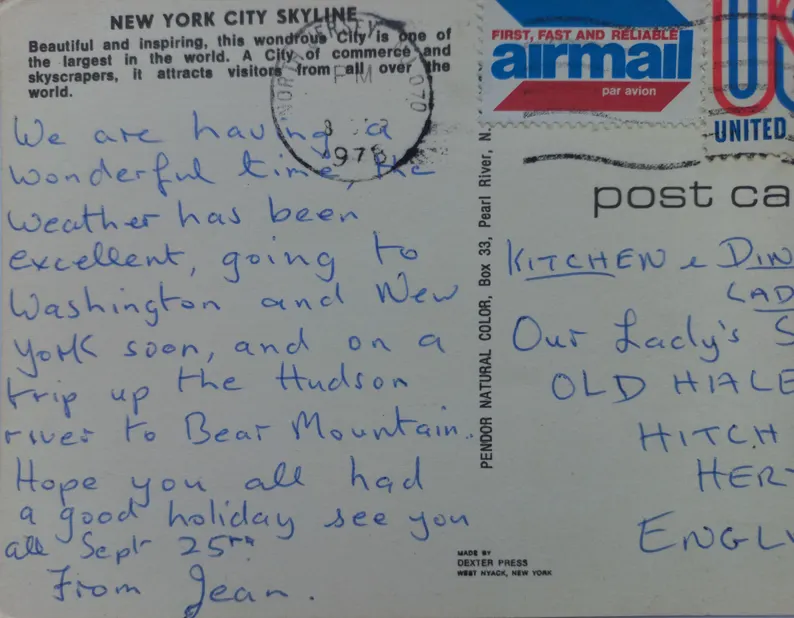 NEW YORK CITY SKYLINE
Beautiful and inspiring, this wondrous City is one of
the largest in the world. A City of commerce and
skyscrapers, it attracts visitors from all over the
world.
PM
1976
FIRST, FAST AND RELIABLE
airmail
par avion
UNITED
We are having a
wonderful time, the
weather has been
excellent, going to
Washington and New
York soon, and on a
trip up the Hudson
river to Bear Mountain.
Hope you all had
a good holiday see you
all Sept 25th
From Jean.
PENDOR NATURAL COLOR, Box 33, Pearl River, N.
MADE BY
DEXTER PRESS
WEST NYACK, NEW YORK
post ca
KITCHEN & DIN
LAD
Our Lady's S
OLD HALE
HITCH
HER
ENGL